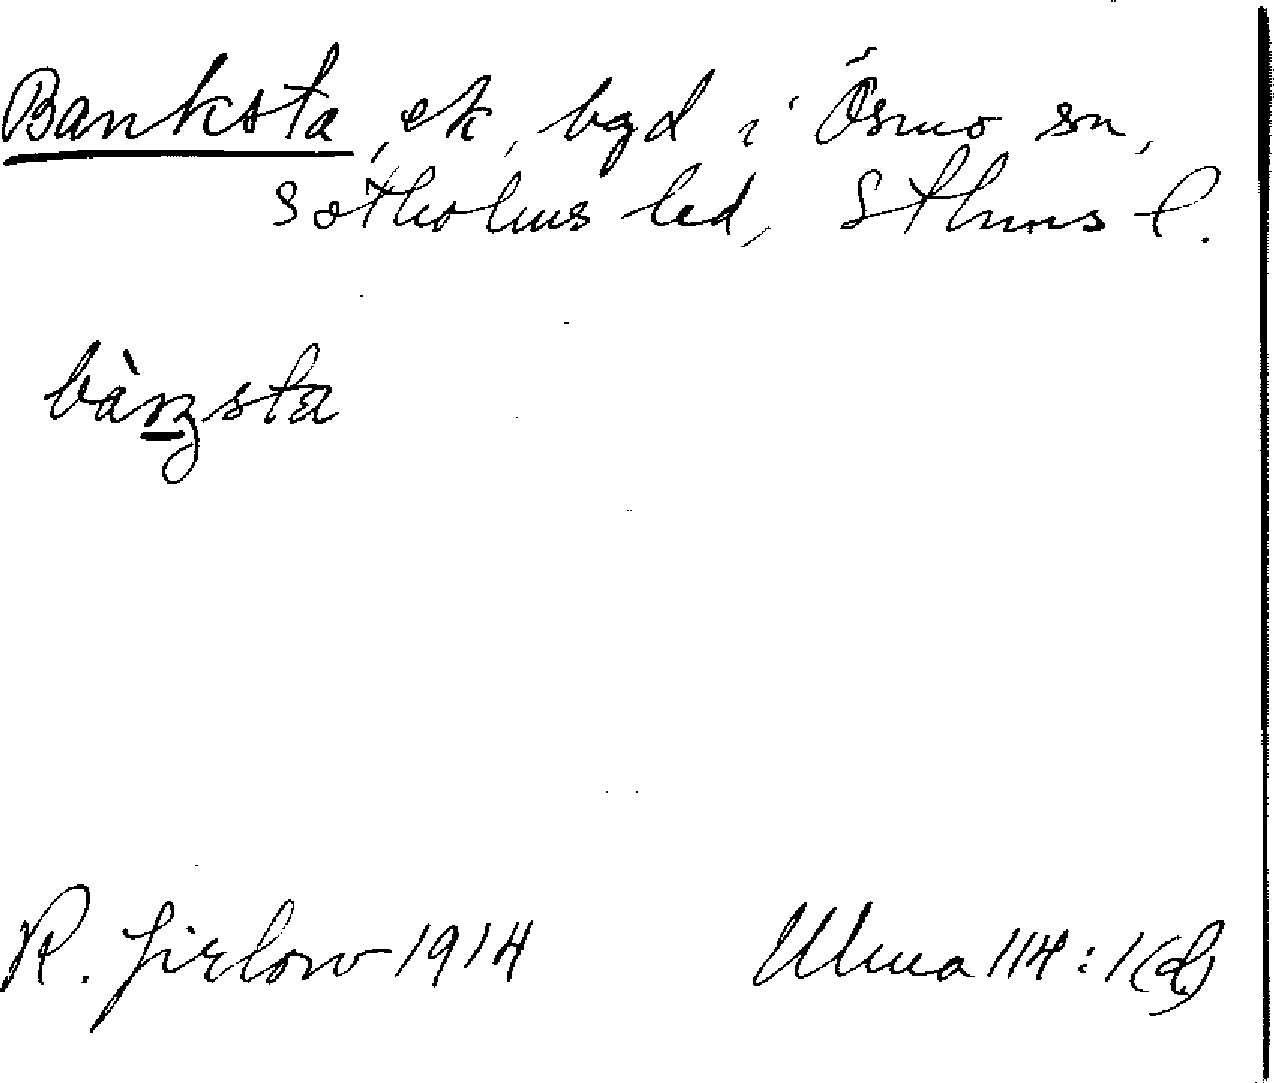 Banksta, ek, bgd i Ösmo sn,
Sotholms hd, Sthms l.
bàŋsta
R. Jirlow 1914 Ulma 114:1(d)